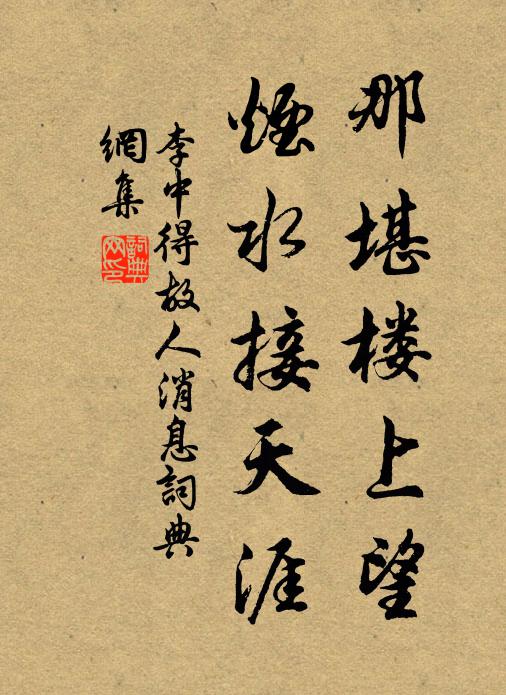 那堪楼上望
煙水接天涯
李中得故人消息詞典
網集
詞典
网印